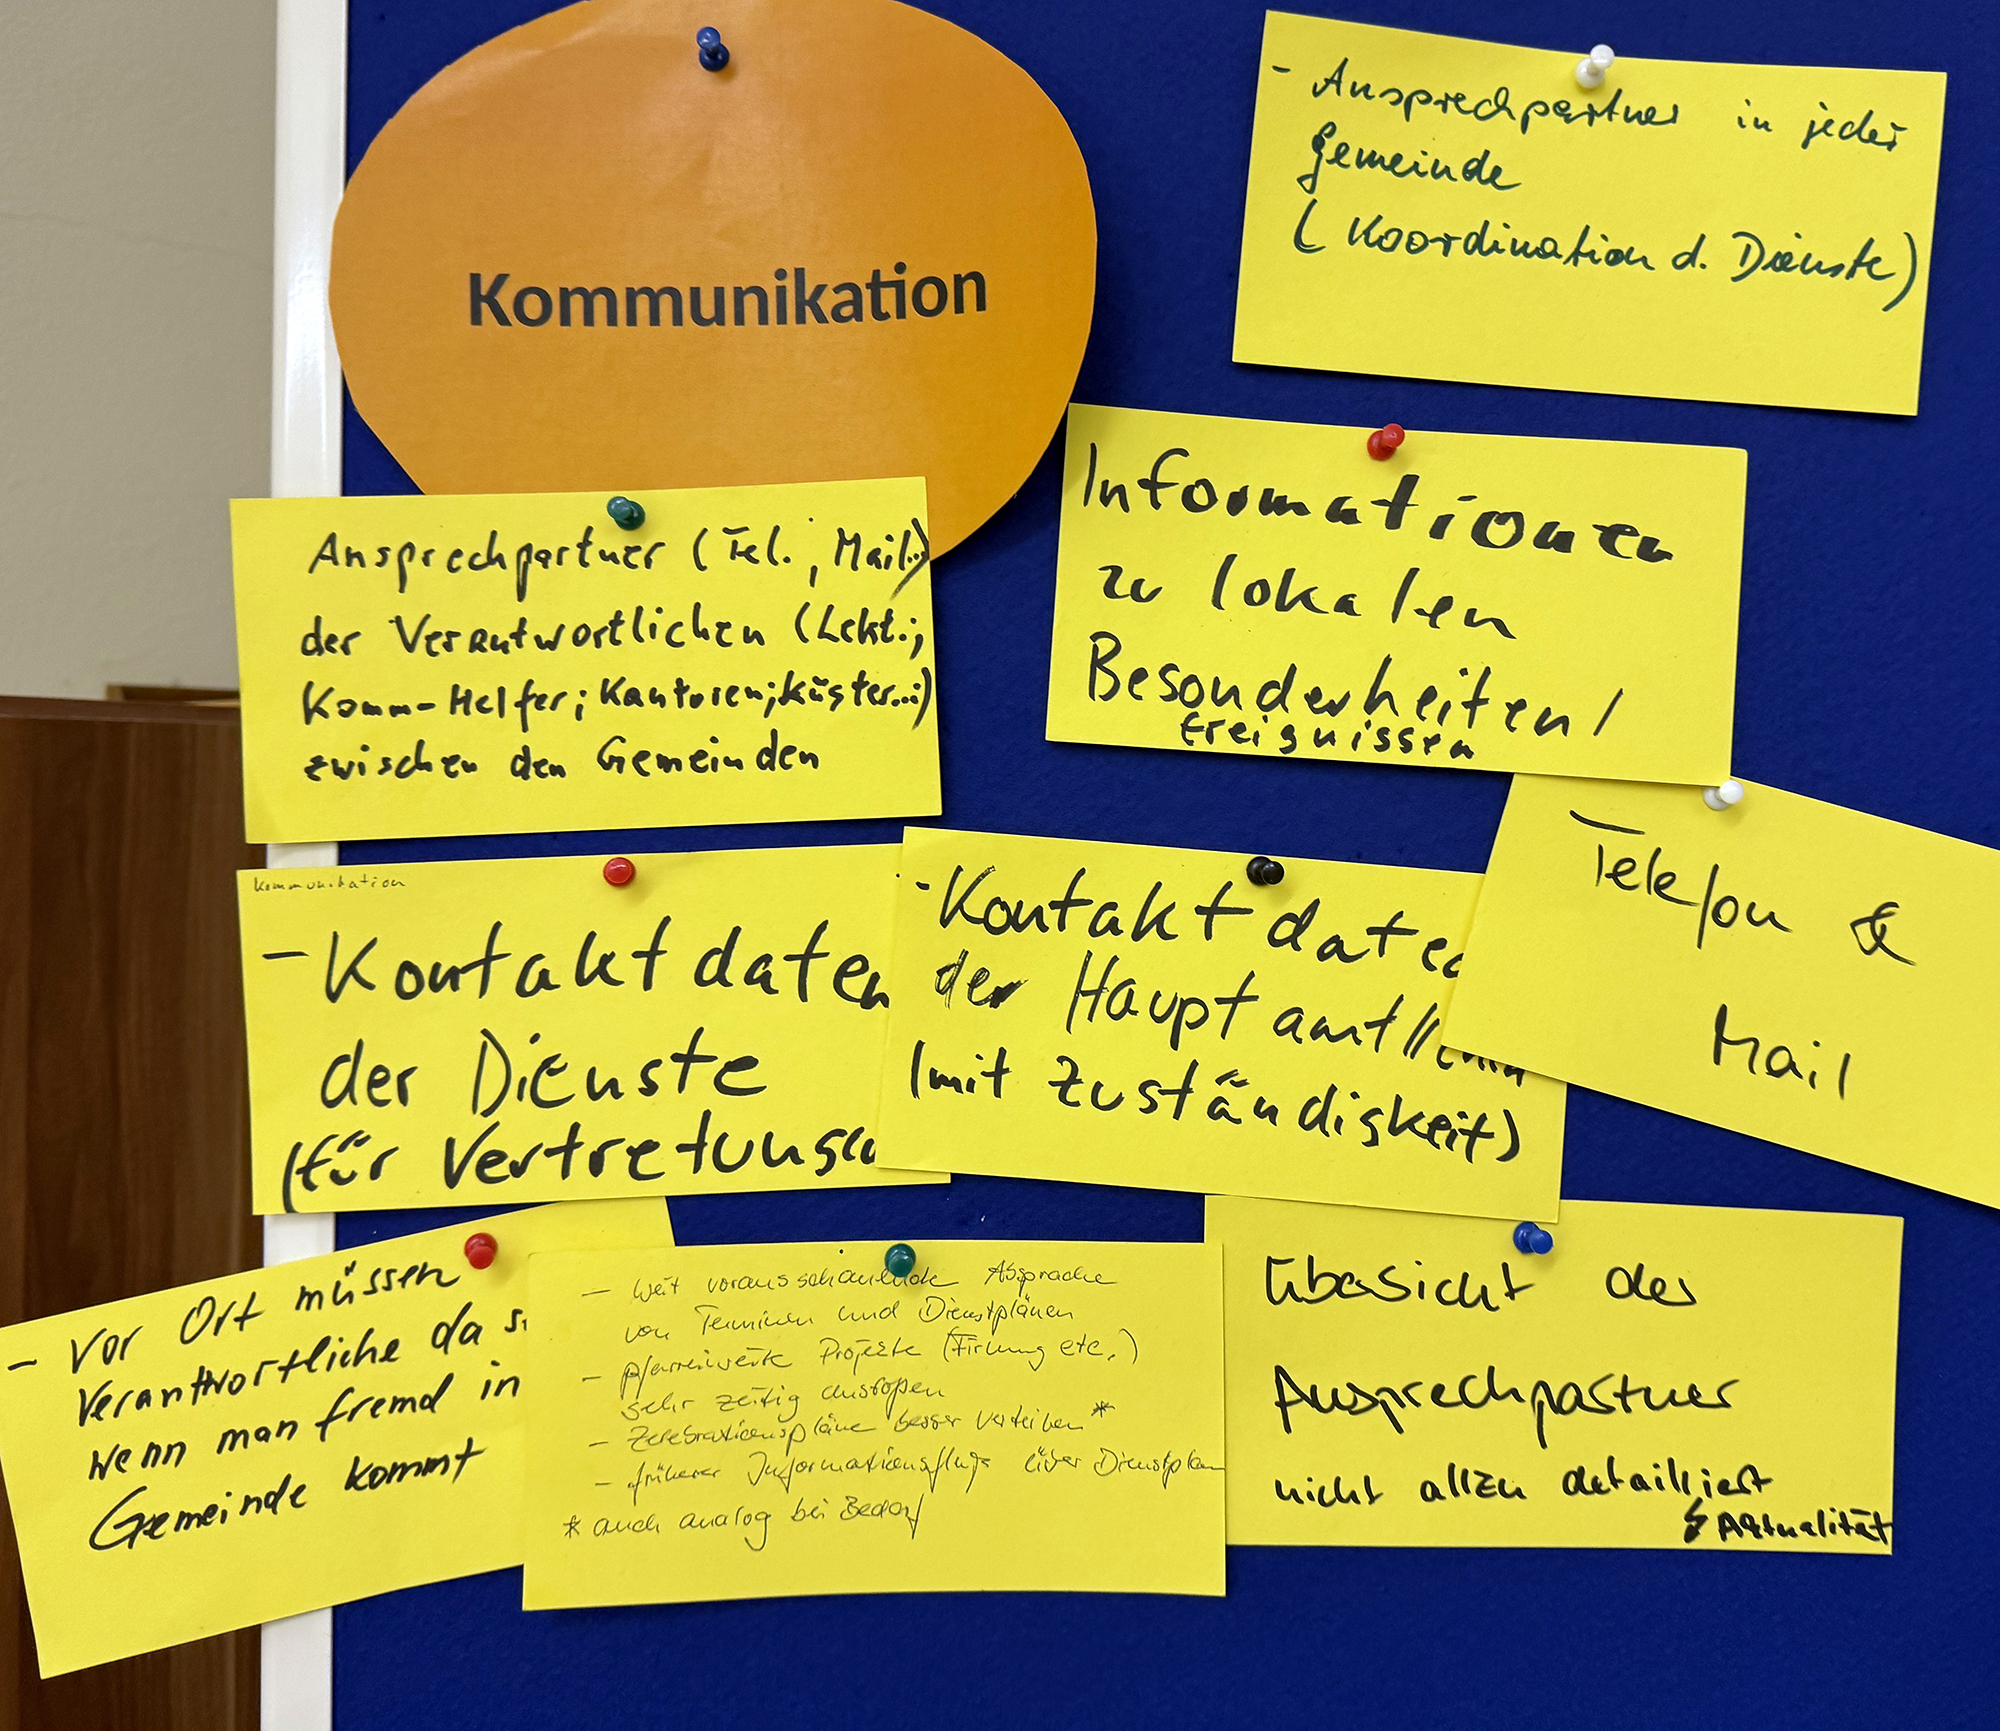 Kommunikation
- Ansprechpartner in jeder
Gemeinde
(Koordination d. Dienste)
Informationen
zu lokalen
Besonderheiten /
Ereignissen
Ansprechpartner (Tel., Mail..)
der Verantwortlichen (Lekt.;
Komm-Helfer; Kantoren; Küster...;)
zwischen den Gemeinden
Kommunikation
- Kontaktdaten
der Dienste
(für Vertretungen
- Kontaktdaten
der Hauptamtlichen
(mit Zuständigkeit)
Telefon &
Mail
- Vor Ort müssen
Verantwortliche da
wenn man fremd in
Gemeinde kommt
- weit vorausschauende Absprache
von Terminen und Dienstplänen
- pfarreiweite Projekte (Firmung etc.)
sehr zeitig anstoßen
- Zelebrationspläne besser verteilen *
- früherer Informationsfluss über Dienstplan
* auch analog bei Bedarf
Übersicht der
Ansprechpartner
nicht allen detailliert
Aktualität